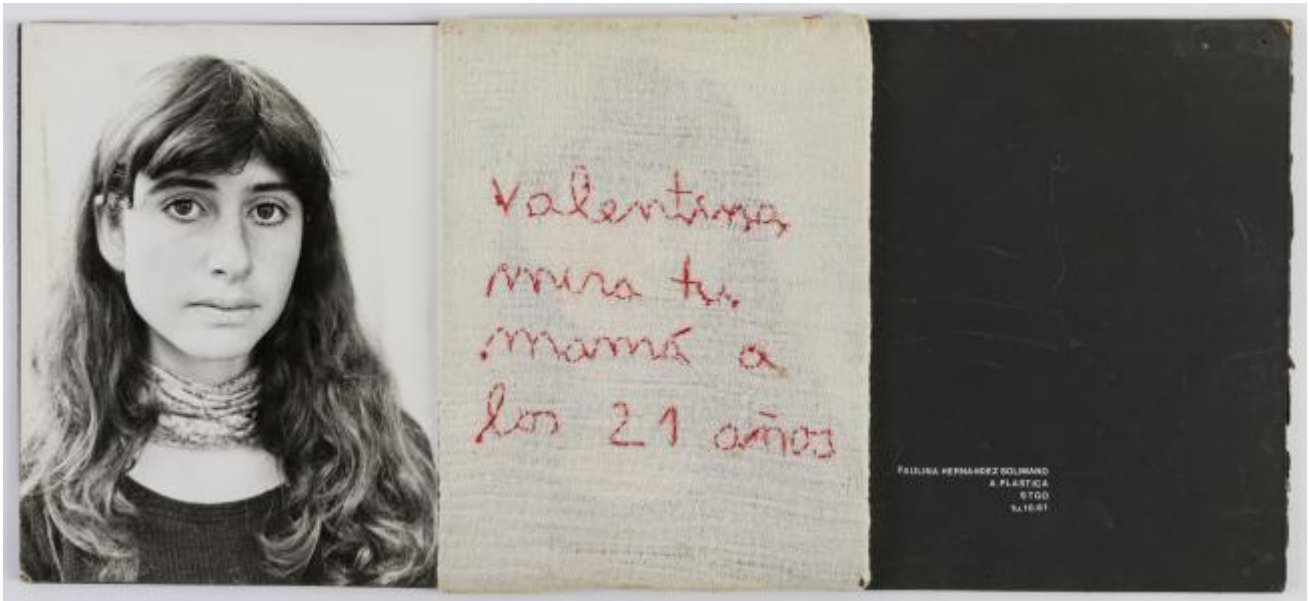 Valentina
mira tu
mamá a
los 21 años
PAULINA HERNANDEZ SOLIMANO
A. PLASTICA
STGO